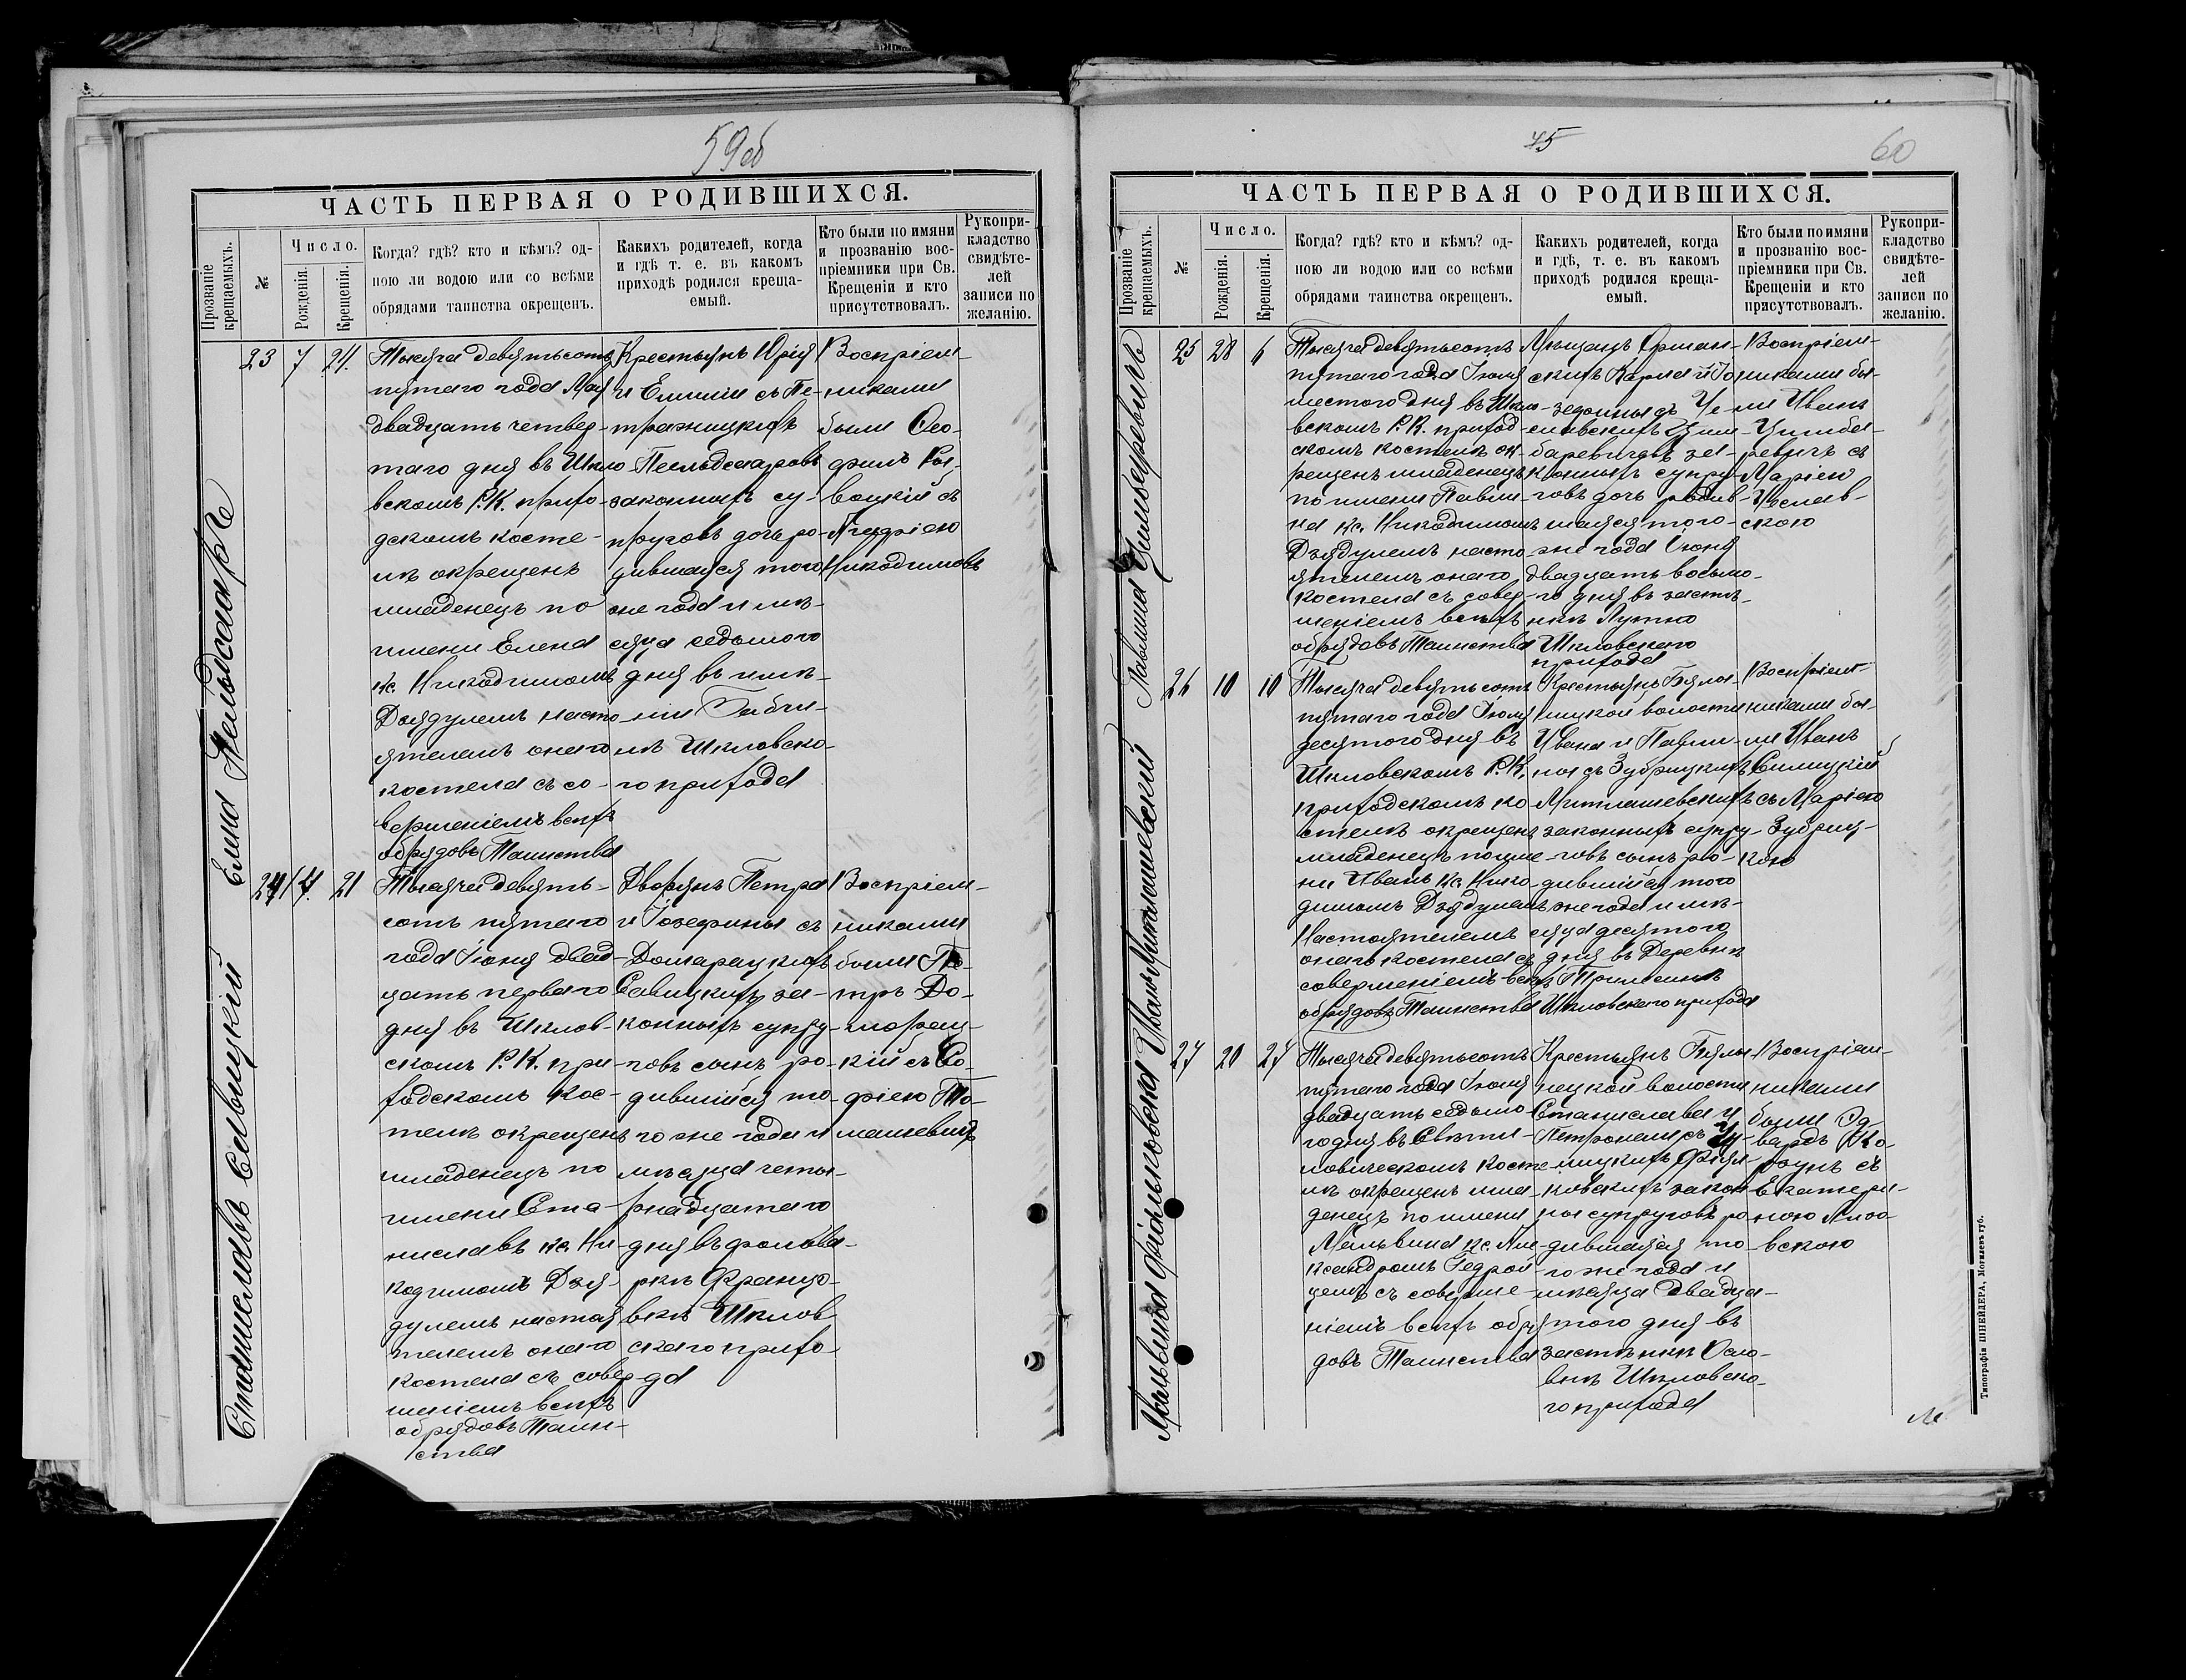 59об
ЧАСТЬ ПЕРВАЯ О РОДИВШИХСЯ.
Прозваніе крещаемыхъ.
№
Число.
Рожденія.
Крещенія.
Когда? гдѣ? кто и кѣмъ? од-
ною ли водою или со всѣми
обрядами таинства окрещенъ.
Какихъ родителей, когда
и гдѣ т. е. въ какомъ
приходѣ родился креща-
емый.
Кто были по имяни
и прозванію вос-
пріемники при Св.
Крещеніи и кто
присутствовалъ.
Рукопри-
кладство
свидѣте-
лей
записи по
желанію.
Елена
23
7
24.
Тысяча девятьсотъ
пятаго года Мая
двадцать четвер-
таго дня въ Шкло-
вскомъ Р.К. прихо-
дскомъ косте-
лѣ окрещенъ
младенецъ по
имени Елена
Кс. Никодимомъ
Дзядулемъ насто-
ятелемъ онаго
костела съ со-
вершеніемъ всѣхъ
обрядовъ Таинства
Крестьянъ Юрія
и Емиліи съ Пе-
тражицкихъ
законныхъ су-
пруговъ дочь ро-
дившаяся того
же года и мѣ-
сяца седьмого
дня въ имѣ-
ніи
Шкловска-
го прихода
Воспріем-
никами
были Ѳео-
филъ
съ
Никодимовъ
Станиславъ Савицкій
24
14
21
Тысяча девять-
сотъ пятаго
года Іюня двад-
цать перваго
дня въ Шклов-
скомъ Р.К. при-
ходскомъ кос-
телѣ окрещенъ
младенецъ по
имени Ста-
ниславъ Кс. Ни-
кодимомъ Дзя-
дулемъ настоя
телемъ онаго
костела съ совер-
шеніемъ всѣхъ
обрядовъ Таин-
ства
Дворянъ Петра
и Іозефины съ
Домарацкихъ
Савицкихъ за-
конныхъ супру-
говъ сынъ ро-
дившійся то-
го же года и
мѣсяца четы-
рнадцатаго
дня въ фольва-
ркѣ Францо-
вкѣ Шклов
скаго прихо-
да
Воспріем-
никами
были Пе-
тръ До-
марац-
кій съ Со-
фіею То-
машевичъ
45
60
ЧАСТЬ ПЕРВАЯ О РОДИВШИХСЯ.
Прозваніе крещаемыхъ.
№
Число.
Рожденія.
Крещенія.
Когда? гдѣ? кто и кѣмъ? од-
ною ли водою или со всѣми
обрядами таинства окрещенъ.
Какихъ родителей, когда
и гдѣ, т. е. въ какомъ
приходѣ родился креща-
емый.
Кто были по имяни
и прозванію вос-
пріемники при Св.
Крещеніи и кто
присутствовалъ.
Рукопри-
кладство
свидѣте-
лей
записи по
желанію.
Павлина Цимбаревичъ
25
28
6
Тысяча девятьсотъ
пятаго года Іюля
шестого дня въ Шкло-
вскомъ Р.К. приход-
скомъ костелѣ ок-
рещенъ младенецъ
по имени Павли-
на Кс. Никодимомъ
Дзядулемъ насто-
ятелемъ онаго
костела съ совер-
шеніемъ всѣхъ
обрядовъ Таинства
Мѣщанъ Оршан-
скихъ Карла и Іо-
зефины съ Че-
славскихъ Цим-
баревичъ за-
конныхъ супру-
говъ дочь родив-
шаяся того-
же года Іюня
двадцать восьмо-
го дня въ застѣ-
нкѣ Лутно
Шкловскаго
прихода
Воспріем-
никами бы-
ли Иванъ
Цимба-
ревичъ съ
Маріею
Чеслав-
скою
Иванъ Митлашевскій
26
10
10
Тысяча девятьсотъ
пятаго года Іюля
десятого дня въ
Шкловскомъ Р.К.
приходскомъ ко-
стелѣ окрещенъ
младенецъ по име-
ни Иванъ Кс. Нико-
димомъ Дзядулемъ
Настоятелемъ
онаго костела съ
совершеніемъ всѣхъ
обрядовъ Таинства
Крестьянъ Бялы-
ницкой волости
Ивана и Павли-
ны съ Зубрицкихъ
Митлашевскихъ
законныхъ супру-
говъ сынъ ро-
дившійся того
же года и мѣ-
сяца десятого
дня въ Деревнѣ
Шкловскаго прихода
Воспріем-
никами бы-
ли Иванъ
Силицкій
съ Маріею
Зубриц-
кою
Мальвина Фіалковская
27
20
27
Тысяча девятьсотъ
пятаго года Іюня
двадцать седьмо-
го дня въ
костѣ-
лѣ окрещенъ мла-
денецъ по имени
Мальвина Кс. Але-
ксандромъ Гедрой-
цемъ съ соверше-
ніемъ всѣхъ обря-
довъ Таинства
Крестьянъ Бялы-
ницкой волости
Станислава и
Петронели съ
законн-
ыхъ супруговъ ро-
дившаяся то-
го же года и
мѣсяца двадца-
того дня въ
застѣнкѣ Осо-
вкѣ Шкловска-
го прихода
Воспріем-
никами
были Эд-
вардъ
съ
Екатери-
ною
Типографія ШНЕЙДЕРА, Могилевъ губ.